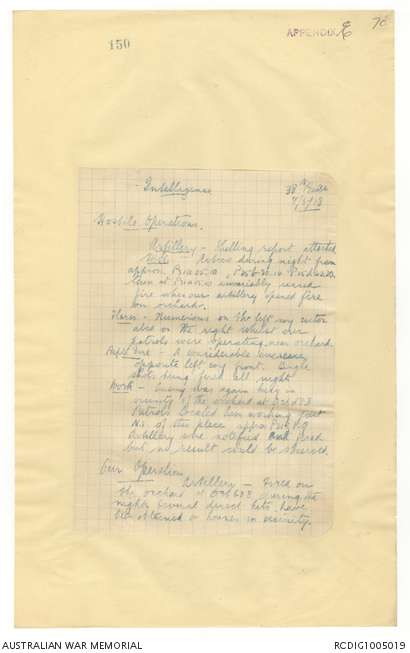 150
APPENDIX E
70
Intelligence
38
7/5/18
Hostile Operations.
Artillery - Shelling report attached
active during night from
approx.
invariably
fire when our artillery opened fire
on orchard.
Flares - Numerous on the left coy sector
also on the right whilst our
patrols were operating near orchard
Rifle Fire - A considerable increase
opposite left coy front. Single
shots being fired all night
Work - Enemy was again busy in
vicinity of the orchard at
Patrols located working
N. of this place approx
Artillery were notified and fired
but no result could be observed
Our Operations
Artillery - Fired on
the orchard at during the
night, several direct hits have
been obtained on houses in vicinity.
AUSTRALIAN WAR MEMORIAL
RCDIG1005019